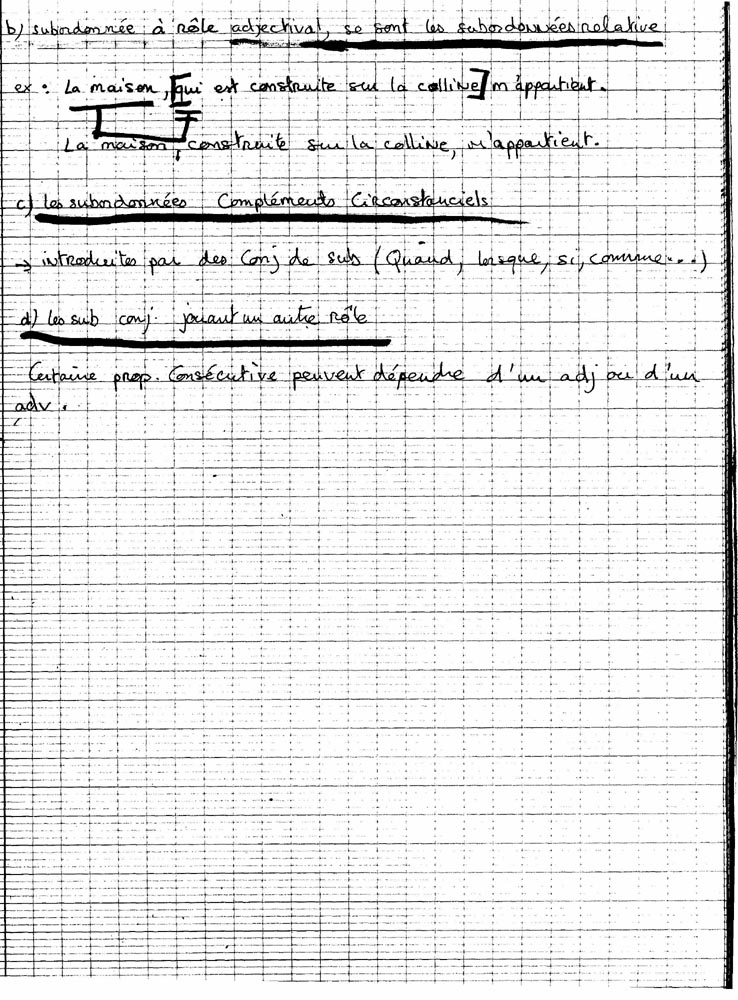 b) subordonnée à rôle adjectival, se sont les subordonnées relative
ex : La maison, [qui est construite sur la colline] m'appartient.
La maison, construite sur la colline, m'appartient.
c) les subordonnées Compléments Circonstanciels
→ introduites par des Conj de sub (Quand, lorsque, si, comme...)
d) les sub conj. jouant un autre rôle
Certaine prop. Consécutive peuvent dépendre d'un adj ou d'un
adv.